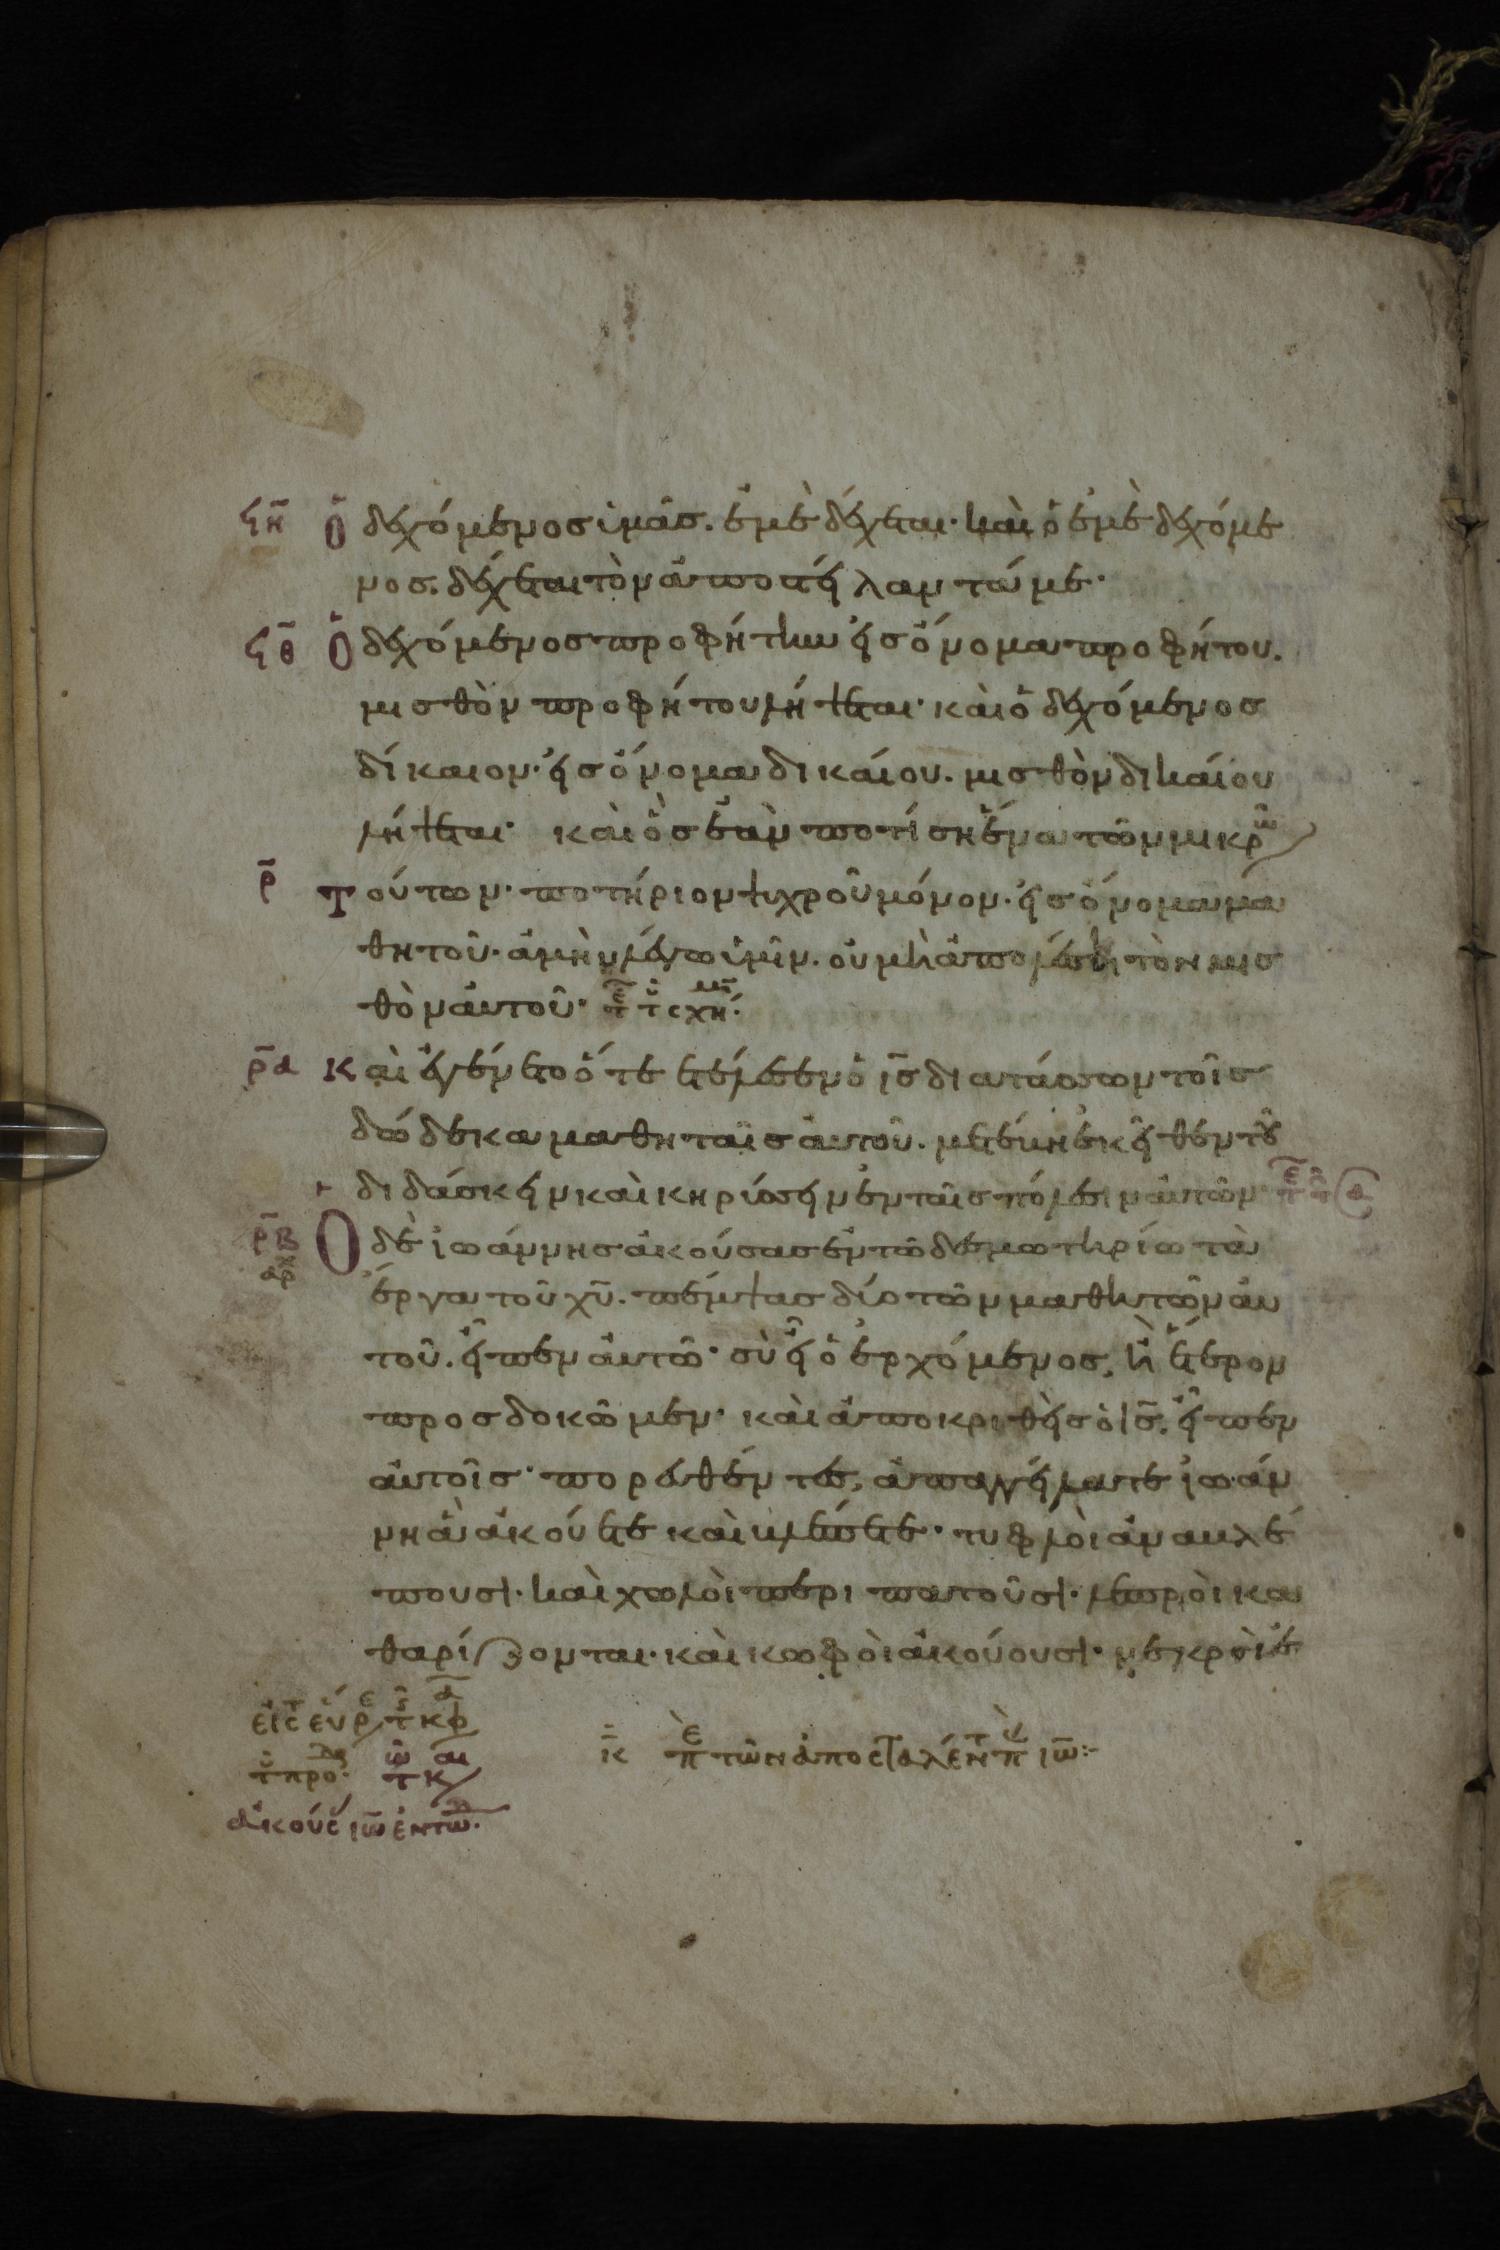 ϟη Ὁ δεχόμενος ὑμᾶς. ἐμὲ δέχεται· καὶ ὁ ἐμὲ δεχόμε
νος. δέχεται τὸν ἀποστείλαντά με·
ϟθ Ὁ δεχόμενος προφήτην εἰς ὄνομα προφήτου.
μισθὸν προφήτου λήψεται· καὶ ὁ δεχόμενος
δίκαιον· εἰς ὄνομα δικαίου. μισθὸν δικαίου
λήψεται· καὶ ὃς ἐὰν ποτίση ἕνα τῶν μικρῶ
ρ τούτων· ποτήριον ψυχροῦ μόνον· εἰς ὄνομα μα
θητοῦ· ἀμὴν λέγω ὑμῖν. οὐ μὴ ἀπολέση τὸν μισ
θὸν αὐτοῦ·
ρα Καὶ ἐγένετο ὅτε ἐτέλεσεν ὁ ις διατάσσων τοῖς
δώδεκα μαθηταῖς αὐτοῦ. μετέβη ἐκεῖθεν τοῦ
διδάσκειν καὶ κηρύσσειν ἐν ταῖς πόλεσιν αὐτῶν·
ρβ Ὁ δὲ ἰωάννης ἀκούσας ἐν τῶ δεσμωτηρίω τὰ
αρχ
ἔργα τοῦ χυ. πέμψας δύο τῶν μαθητῶν αὐ
τοῦ. εἶπεν αὐτῶ· σὺ εἶ ὁ ἐρχόμενος, ἢ ἕτερον
προσδοκῶμεν· καὶ ἀποκριθεὶς ὁ ις. εἶπεν
αὐτοῖς· πορευθέντες, ἀπαγγείλατε ἰωάν
νη ἃ ἀκούετε καὶ βλέπετε· τυφλοὶ ἀναβλέ
πουσι· καὶ χωλοὶ περιπατοῦσι· λεπροὶ κα
θαρίζονται· καὶ κωφοὶ ἀκούουσι· νεκροὶ ἐ
κ π τῶν ἀποσταλέντ π ιω
ἀκούσ ιω ἐν τω